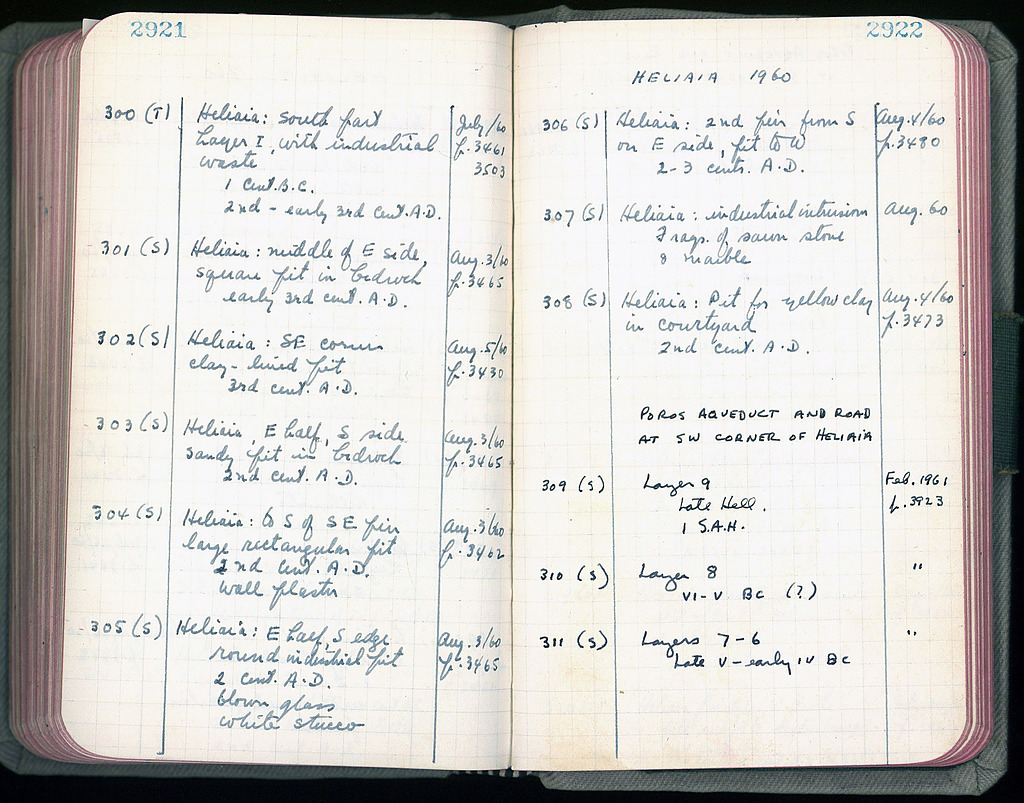 2921
300 (T) Heliaia: South part July/60
Layer I, with industrial p. 3461
waste 3503
1 cent. B.C.
2nd - early 3rd cent. A.D.
301 (S) Heliaia: middle of E side, Aug. 3/60
square pit in bedrock p. 3465
early 3rd cent. A.D.
302 (S) Heliaia: SE corner Aug. 5/60
clay-lined pit p. 3430
3rd cent. A.D.
303 (S) Heliaia, E half, S side Aug. 3/60
sandy pit in bedrock p. 3465
2nd cent. A.D.
304 (S) Heliaia: to S of SE pier Aug. 3/60
large rectangular pit p. 3462
2nd cent. A.D.
wall plaster
305 (S) Heliaia: E half, S edge Aug. 3/60
round industrial pit p. 3465
2 cent. A.D.
blown glass
white stucco
2922
HELIAIA 1960
306 (S) Heliaia: 2nd pier from S Aug. 4/60
on E side, pit to W p. 3480
2-3 cents. A.D.
307 (S) Heliaia: industrial intrusion Aug. 60
Frags. of sawn stone
& marble
308 (S) Heliaia: Pit for yellow clay Aug. 4/60
in courtyard p. 3473
2nd cent. A.D.
POROS AQUEDUCT AND ROAD
AT SW CORNER OF HELIAIA
309 (S) Layer 9 Feb. 1961
Late Hell. p. 3923
1 S.A.H.
310 (S) Layer 8 "
VI-V BC (?)
311 (S) Layers 7-6 "
Late V - early IV BC